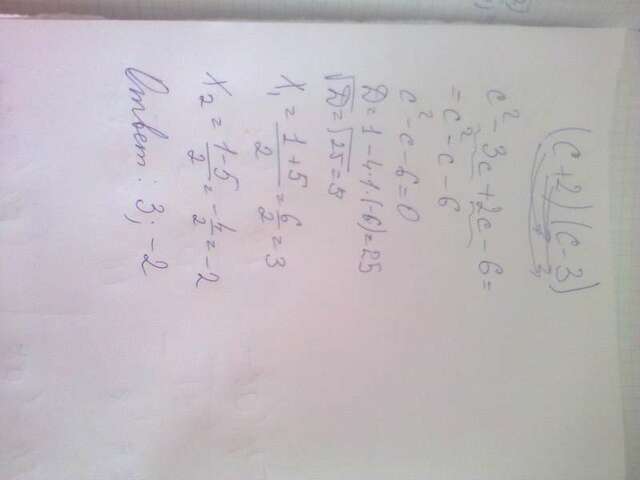 (c+2)(c-3)
c²-3c+2c-6=
=c²-c-6
c²-c-6=0
D=1-4·1·(-6)=25
√D=√25=5
x₁=(1+5)/2=6/2=3
x₂=(1-5)/2=-4/2=-2
Ответ: 3; -2